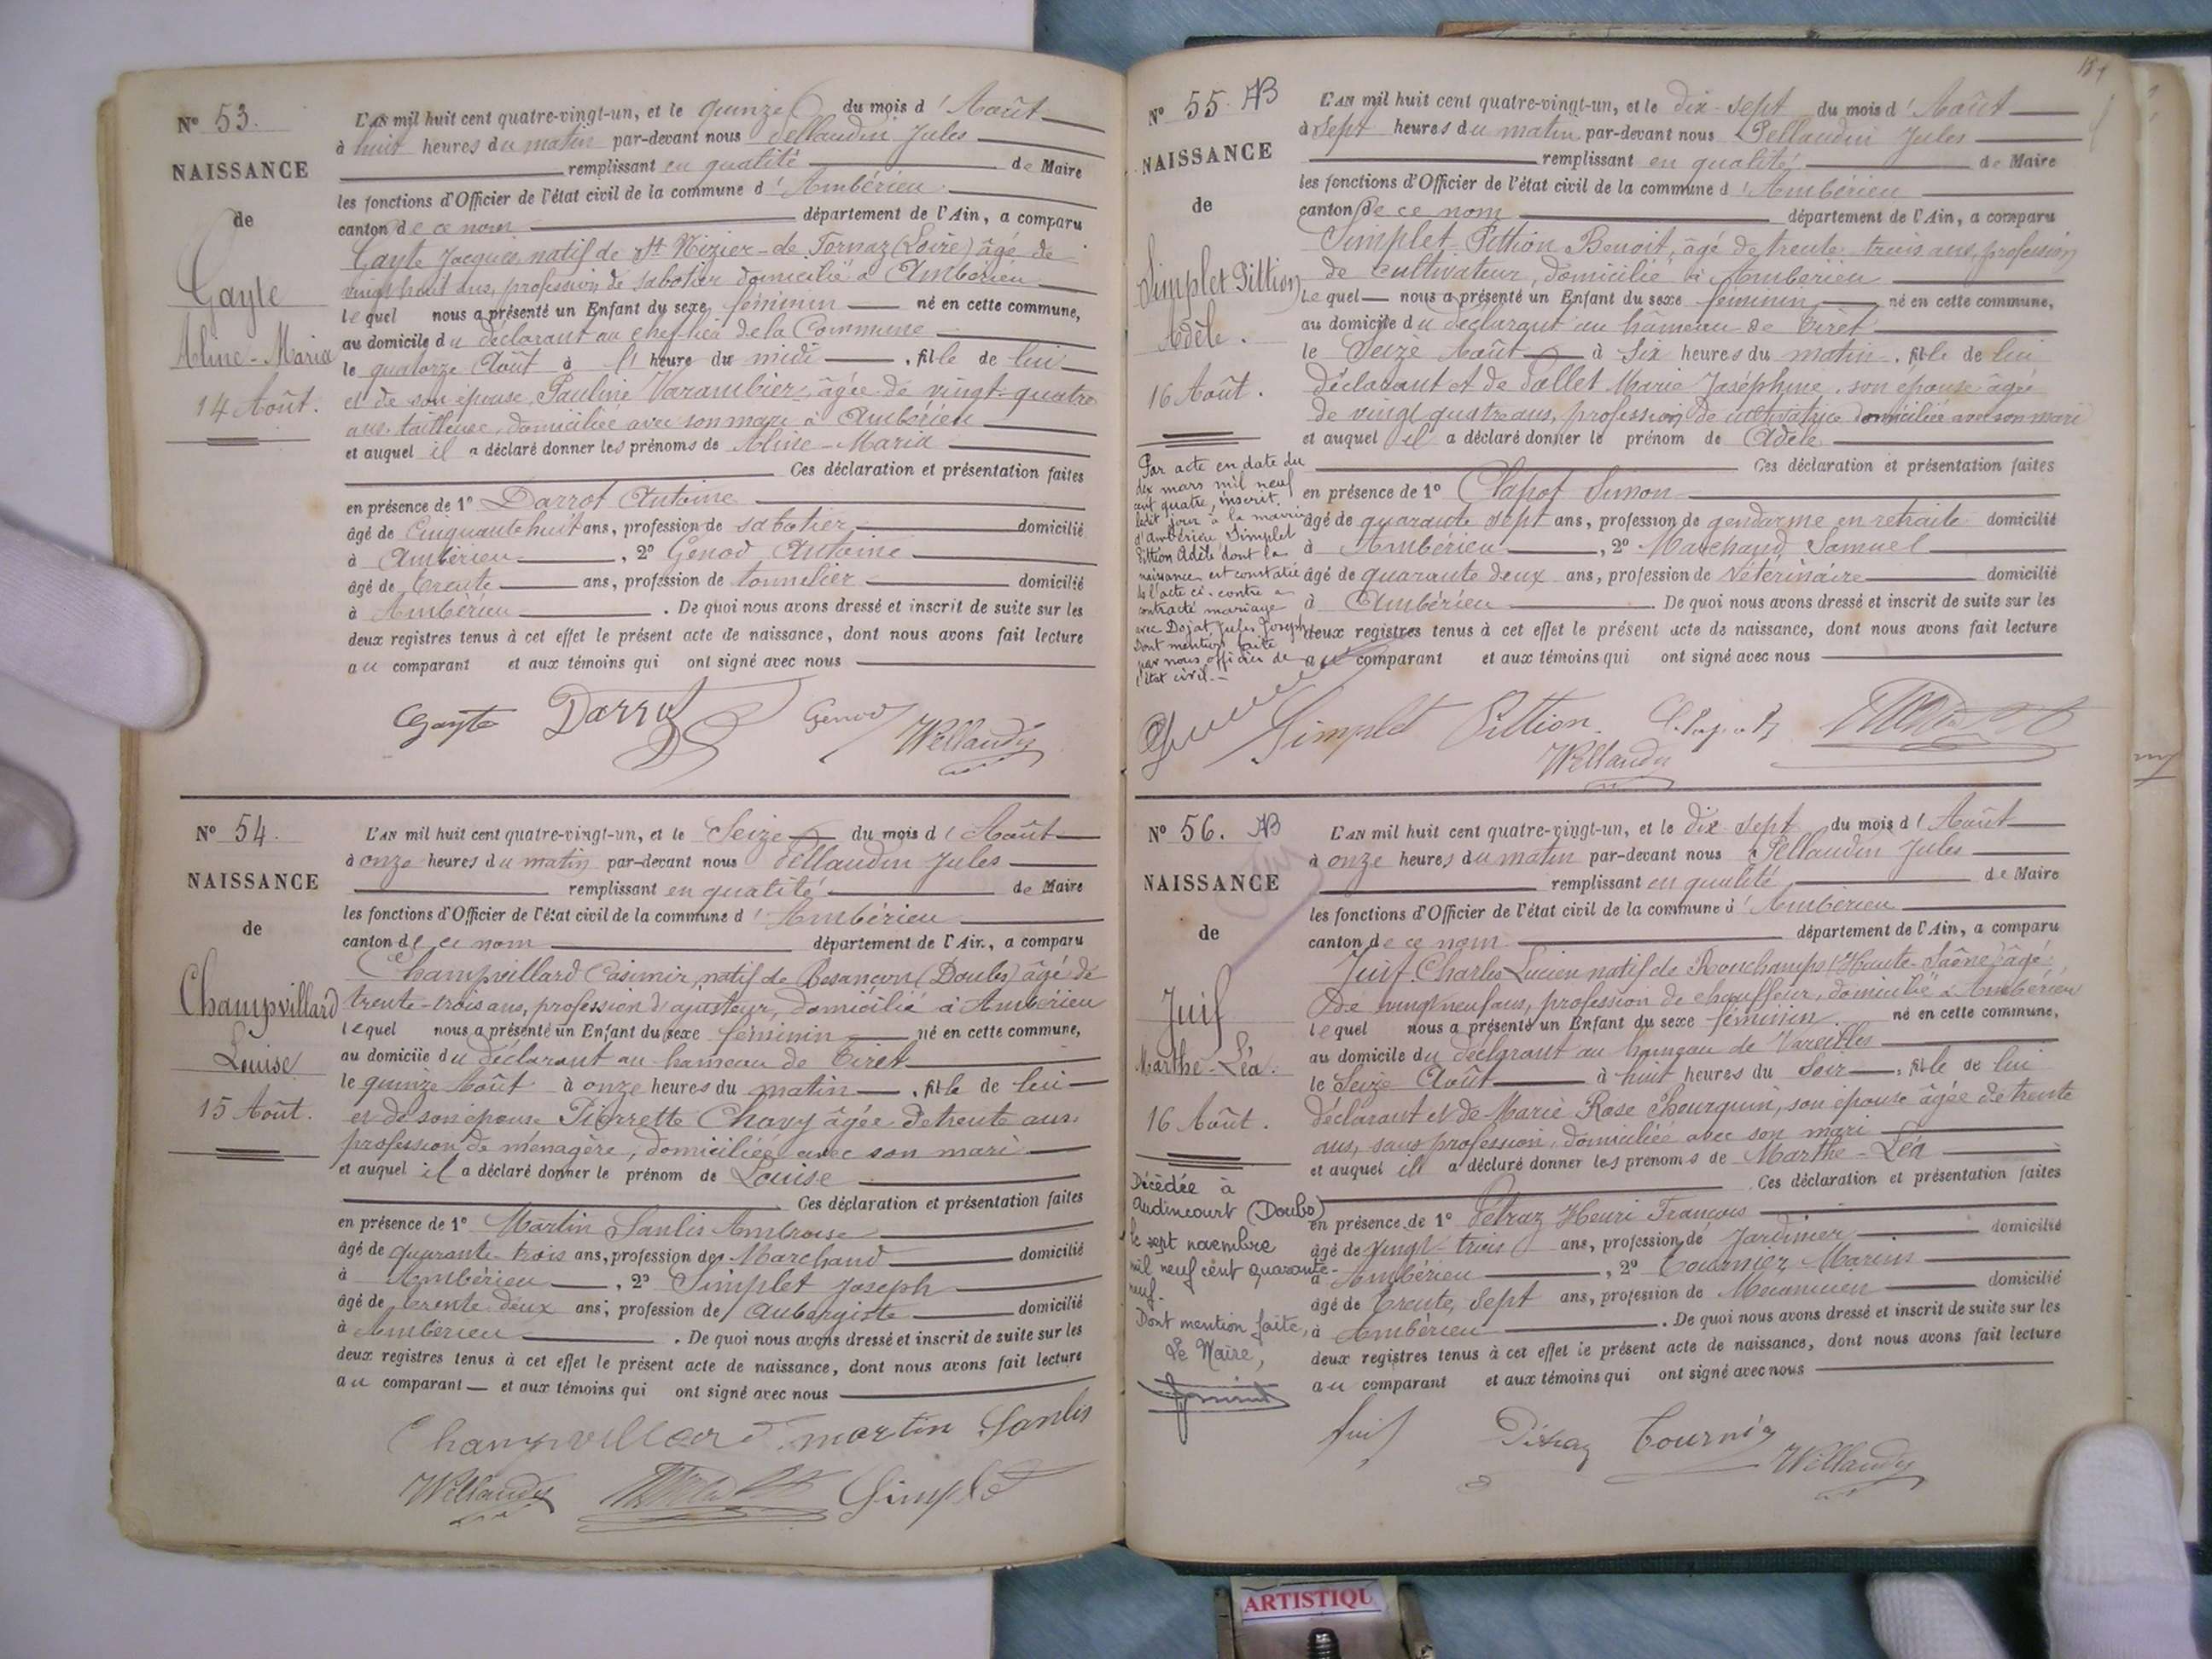 N° 53.
NAISSANCE
de
Gayte
Aline-Maria
14 Août.
L'AN mil huit cent quatre-vingt-un, et le quinze du mois d'Août
à huit heures du matin par-devant nous Pellaudin Jules
remplissant en qualité de Maire
les fonctions d'Officier de l'état civil de la commune d'Ambérieu
canton de ce nom département de l'Ain, a comparu
Gayte Jacques natif de St Nizier-de-Fornaz (Loire) âgé de
vingt huit ans, profession de sabotier domicilié à Ambérieu
lequel nous a présenté un Enfant du sexe féminin né en cette commune,
au domicile du déclarant au chef-lieu de la Commune
le quatorze Août à l'heure du midi, fille de lui
et de son épouse Pauline Varambier, âgée de vingt-quatre
ans tailleuse, domiciliée avec son mari à Ambérieu
et auquel il a déclaré donner les prénoms de Aline-Maria
Ces déclaration et présentation faites
en présence de 1° Darrot Antoine
âgé de Cinquante huit ans, profession de sabotier domicilié
à Ambérieu, 2° Genod Antoine
âgé de trente ans, profession de tonnelier domicilié
à Ambérieu. De quoi nous avons dressé et inscrit de suite sur les
deux registres tenus à cet effet le présent acte de naissance, dont nous avons fait lecture
au comparant et aux témoins qui ont signé avec nous
Gayte Darrot Genod
N° 54.
NAISSANCE
de
Champvillard
Louise
15 Août.
L'AN mil huit cent quatre-vingt-un, et le Seize du mois d'Août
à onze heures du matin par-devant nous Pellaudin Jules
remplissant en qualité de Maire
les fonctions d'Officier de l'état civil de la commune d'Ambérieu
canton de ce nom département de l'Ain, a comparu
Champvillard Casimir, natif de Besançon (Doubs) âgé de
trente-trois ans, profession d'ajusteur, domicilié à Ambérieu
lequel nous a présenté un Enfant du sexe féminin né en cette commune,
au domicile du déclarant au hameau de Tiret
le quinze Août à onze heures du matin, fille de lui
et de son épouse Pierrette Chavy âgée de trente ans
profession de ménagère, domiciliée avec son mari
et auquel il a déclaré donner le prénom de Louise
Ces déclaration et présentation faites
en présence de 1° Martin Sanlis Ambroise
âgé de quarante-trois ans, profession de Marchand domicilié
à Ambérieu, 2° Simplet Joseph
âgé de trente deux ans, profession de Aubergiste domicilié
à Ambérieu. De quoi nous avons dressé et inscrit de suite sur les
deux registres tenus à cet effet le présent acte de naissance, dont nous avons fait lecture
au comparant et aux témoins qui ont signé avec nous
Champvillard martin Sanlis
Simplet
N° 55. AB
NAISSANCE
de
Simplet Pittion
Adèle.
16 Août.
Par acte en date du
dix mars mil neuf
cent quatre, inscrit
ledit jour à la mairie
d'Ambérieu, Simplet
Pittion Adèle dont la
naissance est constatée
de l'acte ci-contre a
contracté mariage
avec Dojat Jules Joseph
Dont mention faite
par nous officier de
l'état civil.-
L'AN mil huit cent quatre-vingt-un, et le dix-sept du mois d'Août
à sept heures du matin par-devant nous Pellaudin Jules
remplissant en qualité de Maire
les fonctions d'Officier de l'état civil de la commune d'Ambérieu
canton de ce nom département de l'Ain, a comparu
Simplet-Pittion Benoit, âgé de trente-trois ans, profession
de cultivateur, domicilié à Ambérieu
Lequel nous a présenté un Enfant du sexe féminin, né en cette commune,
au domicile du déclarant au hâmeau de Tiret
le Seize Août à Six heures du matin, fille de lui
déclarant et de Pallet Marie Joséphine, son épouse âgée
de vingt quatre ans, profession de cultivatrice domiciliée avec son mari
et auquel il a déclaré donner le prénom de Adèle
Ces déclaration et présentation faites
en présence de 1° Clapot Simon
âgé de quarante sept ans, profession de gendarme en retraite domicilié
à Ambérieu, 2° Marchand Samuel
âgé de quarante deux ans, profession de Vétérinaire domicilié
à Ambérieu. De quoi nous avons dressé et inscrit de suite sur les
deux registres tenus à cet effet le présent acte de naissance, dont nous avons fait lecture
au comparant et aux témoins qui ont signé avec nous
Simplet Pittion
N° 56. AB
NAISSANCE
de
Juif
Marthe-Léa.
16 Août.
Décédée à
Audincourt (Doubs)
le sept novembre
mil neuf cent quarante-
neuf.
Dont mention faite,
Le Maire,
L'AN mil huit cent quatre-vingt-un, et le dix-sept du mois d'Août
à onze heures du matin par-devant nous Pellaudin Jules
remplissant en qualité de Maire
les fonctions d'Officier de l'état civil de la commune d'Ambérieu
canton de ce nom département de l'Ain, a comparu
Juif Charles Lucien natif de Ronchamps (Haute-Saône) âgé
de vingt neuf ans, profession de chauffeur, domicilié à Ambérieu
lequel nous a présenté un Enfant du sexe féminin né en cette commune,
au domicile du déclarant au hameau de Vareilles
le Seize Août à huit heures du Soir, fille de lui
déclarant et de Marie Rose Chourquin, son épouse âgée de trente
ans, sans profession, domiciliée avec son mari
et auquel il a déclaré donner les prénoms de Marthe-Léa
Ces déclaration et présentation faites
en présence de 1° Pétraz Henri François
âgé de vingt-trois ans, profession de Jardinier domicilié
à Ambérieu, 2° Tournier Marius
âgé de trente sept ans, profession de Mécanicien domicilié
à Ambérieu. De quoi nous avons dressé et inscrit de suite sur les
deux registres tenus à cet effet le présent acte de naissance, dont nous avons fait lecture
au comparant et aux témoins qui ont signé avec nous
Juif Pétraz Tournier
ARTISTIQU